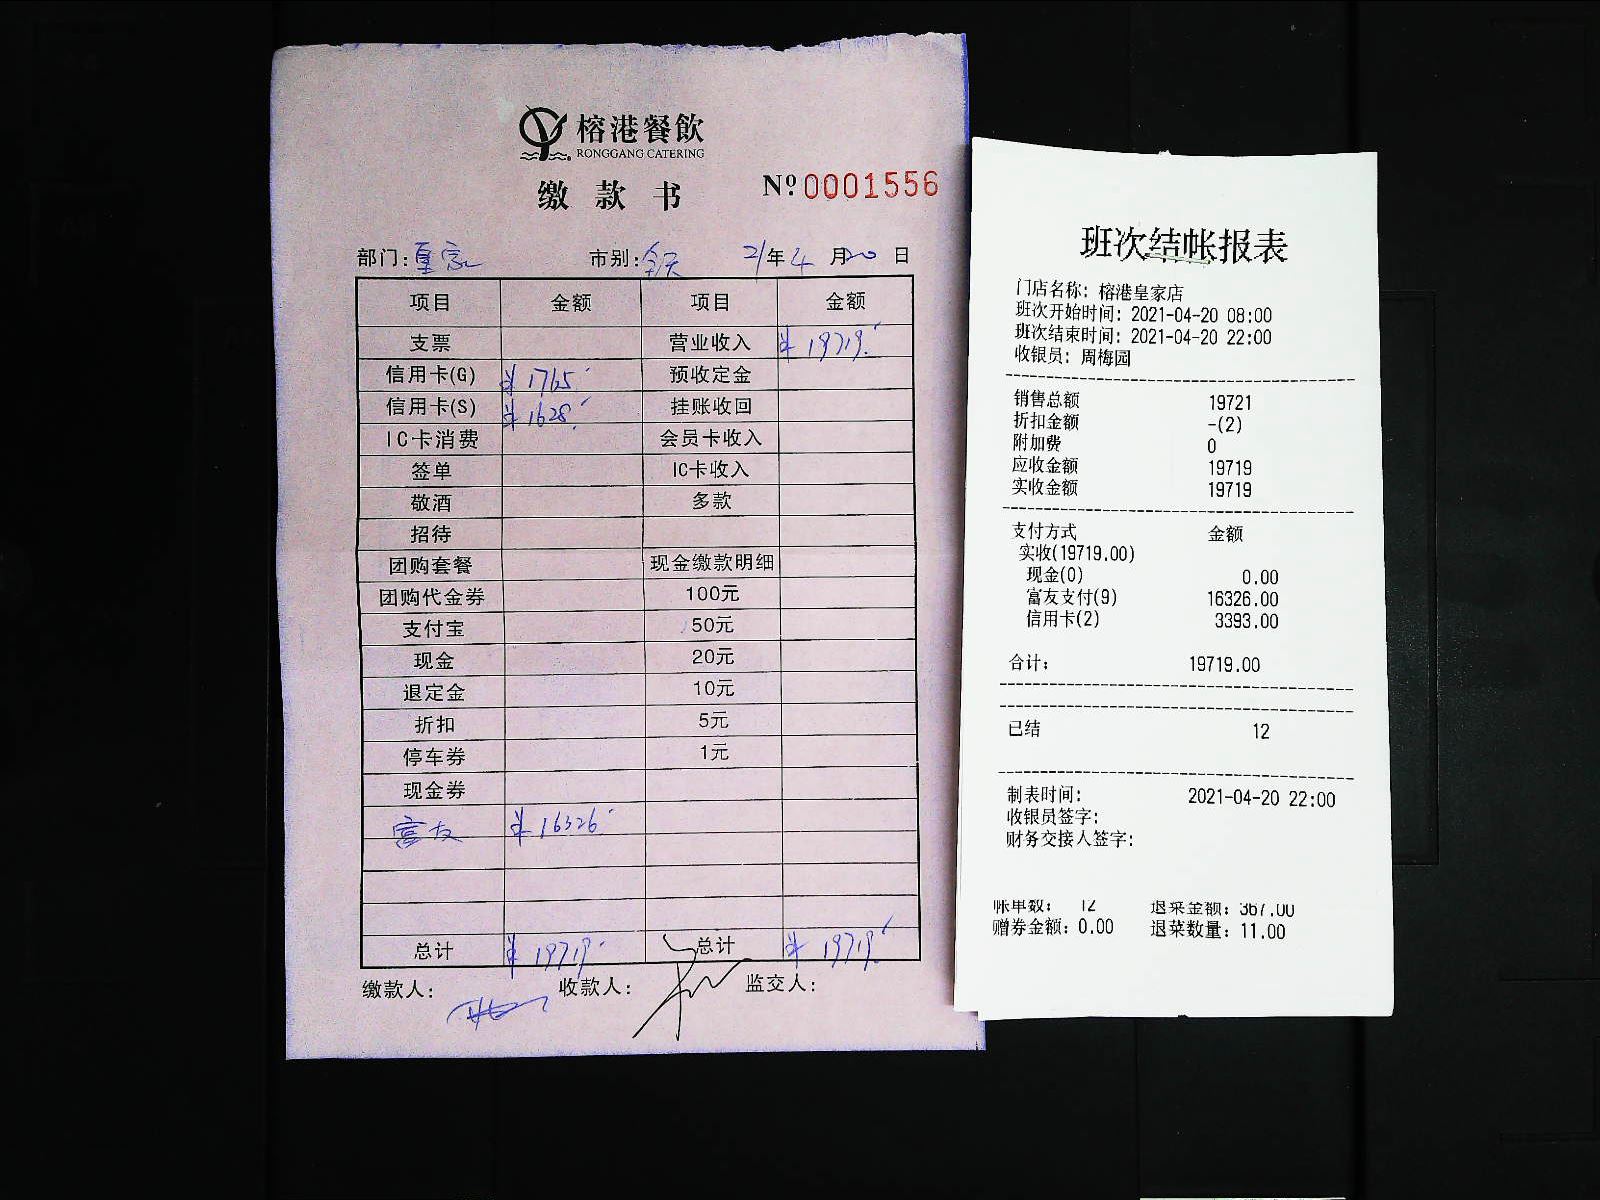 榕港餐飲
RONGGANG CATERING
缴款书 Nº0001556
部门:皇家 市别:全天 21年4月20日
项目 金额 项目 金额
支票 营业收入 ¥19719.
信用卡(G) ¥1765 预收定金
信用卡(S) ¥1628 挂账收回
IC卡消费 会员卡收入
签单 IC卡收入
敬酒 多款
招待
团购套餐 现金缴款明细
团购代金券 100元
支付宝 50元
现金 20元
退定金 10元
折扣 5元
停车券 1元
现金券
富友 ¥16326
总计 ¥19719 总计 ¥19719.
缴款人: 收款人: 监交人:
班次结帐报表
门店名称: 榕港皇家店
班次开始时间: 2021-04-20 08:00
班次结束时间: 2021-04-20 22:00
收银员: 周梅园
销售总额 19721
折扣金额 -(2)
附加费 0
应收金额 19719
实收金额 19719
支付方式 金额
实收(19719.00)
现金(0) 0.00
富友支付(9) 16326.00
信用卡(2) 3393.00
合计: 19719.00
已结 12
制表时间: 2021-04-20 22:00
收银员签字:
财务交接人签字:
帐单数: 12 退菜金额: 367.00
赠券金额: 0.00 退菜数量: 11.00